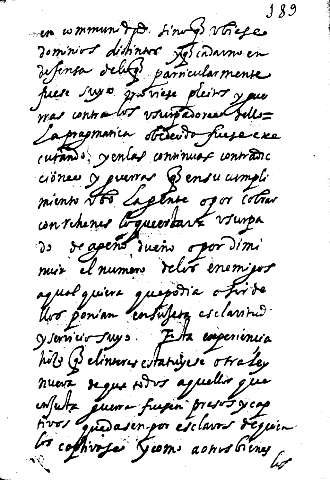 189
en commun dpd. sino q̃ vbiese
dominios distintos y q̃ cada vno en
defensa de lo q̃ particularmente
fuese suyo pusiese pleito y gue
rras contra los vsurpadores dello =
La pragmatica obedecido fuese exe
cutando; y en las continuas contradic
ciones y guerras q̃ en su cumpli
miento vbo La gente o por cobrar
con rehenes lo que estaua vsurpa
do de ageno dueño o por dimi
nuir el numero de los enemigos
aqualquiera que podia asir de
llos ponian en sujeta esclavitud
y servicio suyo. Esta experiencia
hizo q̃ el interes estatuyese otra ley
nueva de que todos aquellos que
en justa guerra fuesen presos y cap
tivos quedasen por esclavos de quien
los captivase y como a otros bienes
los